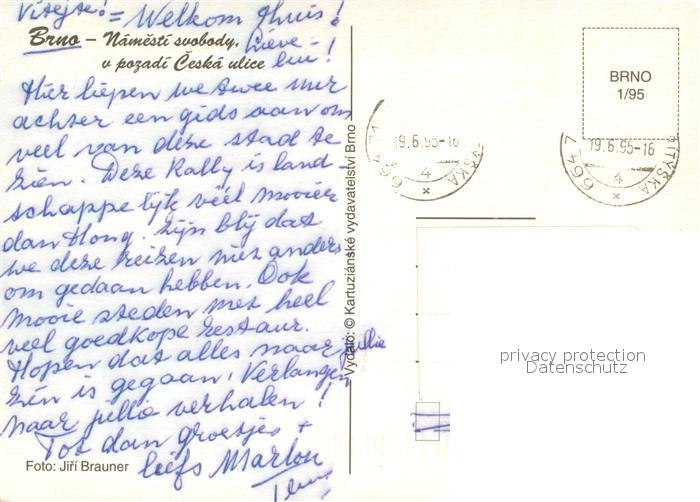 Vítejte! = Welkom thuis!
Brno – Náměstí svobody,
v pozadí Česká ulice
Lieve-
Hier liepen we twee uur
achter een gids aan om
veel van deze stad te
zien. Deze Rally is land-
schappelijk véél mooier
dan Hong. Zijn blij dat
we deze reizen niet anders
om gedaan hebben. Ook
mooie steden met heel
veel goedkope restaur.
Hopen dat alles naar jullie
zin is gegaan, Verlangen
naar jullie verhalen!
Tot dan groetjes +
liefs
Foto: Jiří Brauner
Vydalo: © Kartuziánské vydavatelství Brno
BRNO
1/95
19.6.95-16
4
19.6.95-16
4
privacy protection
Datenschutz